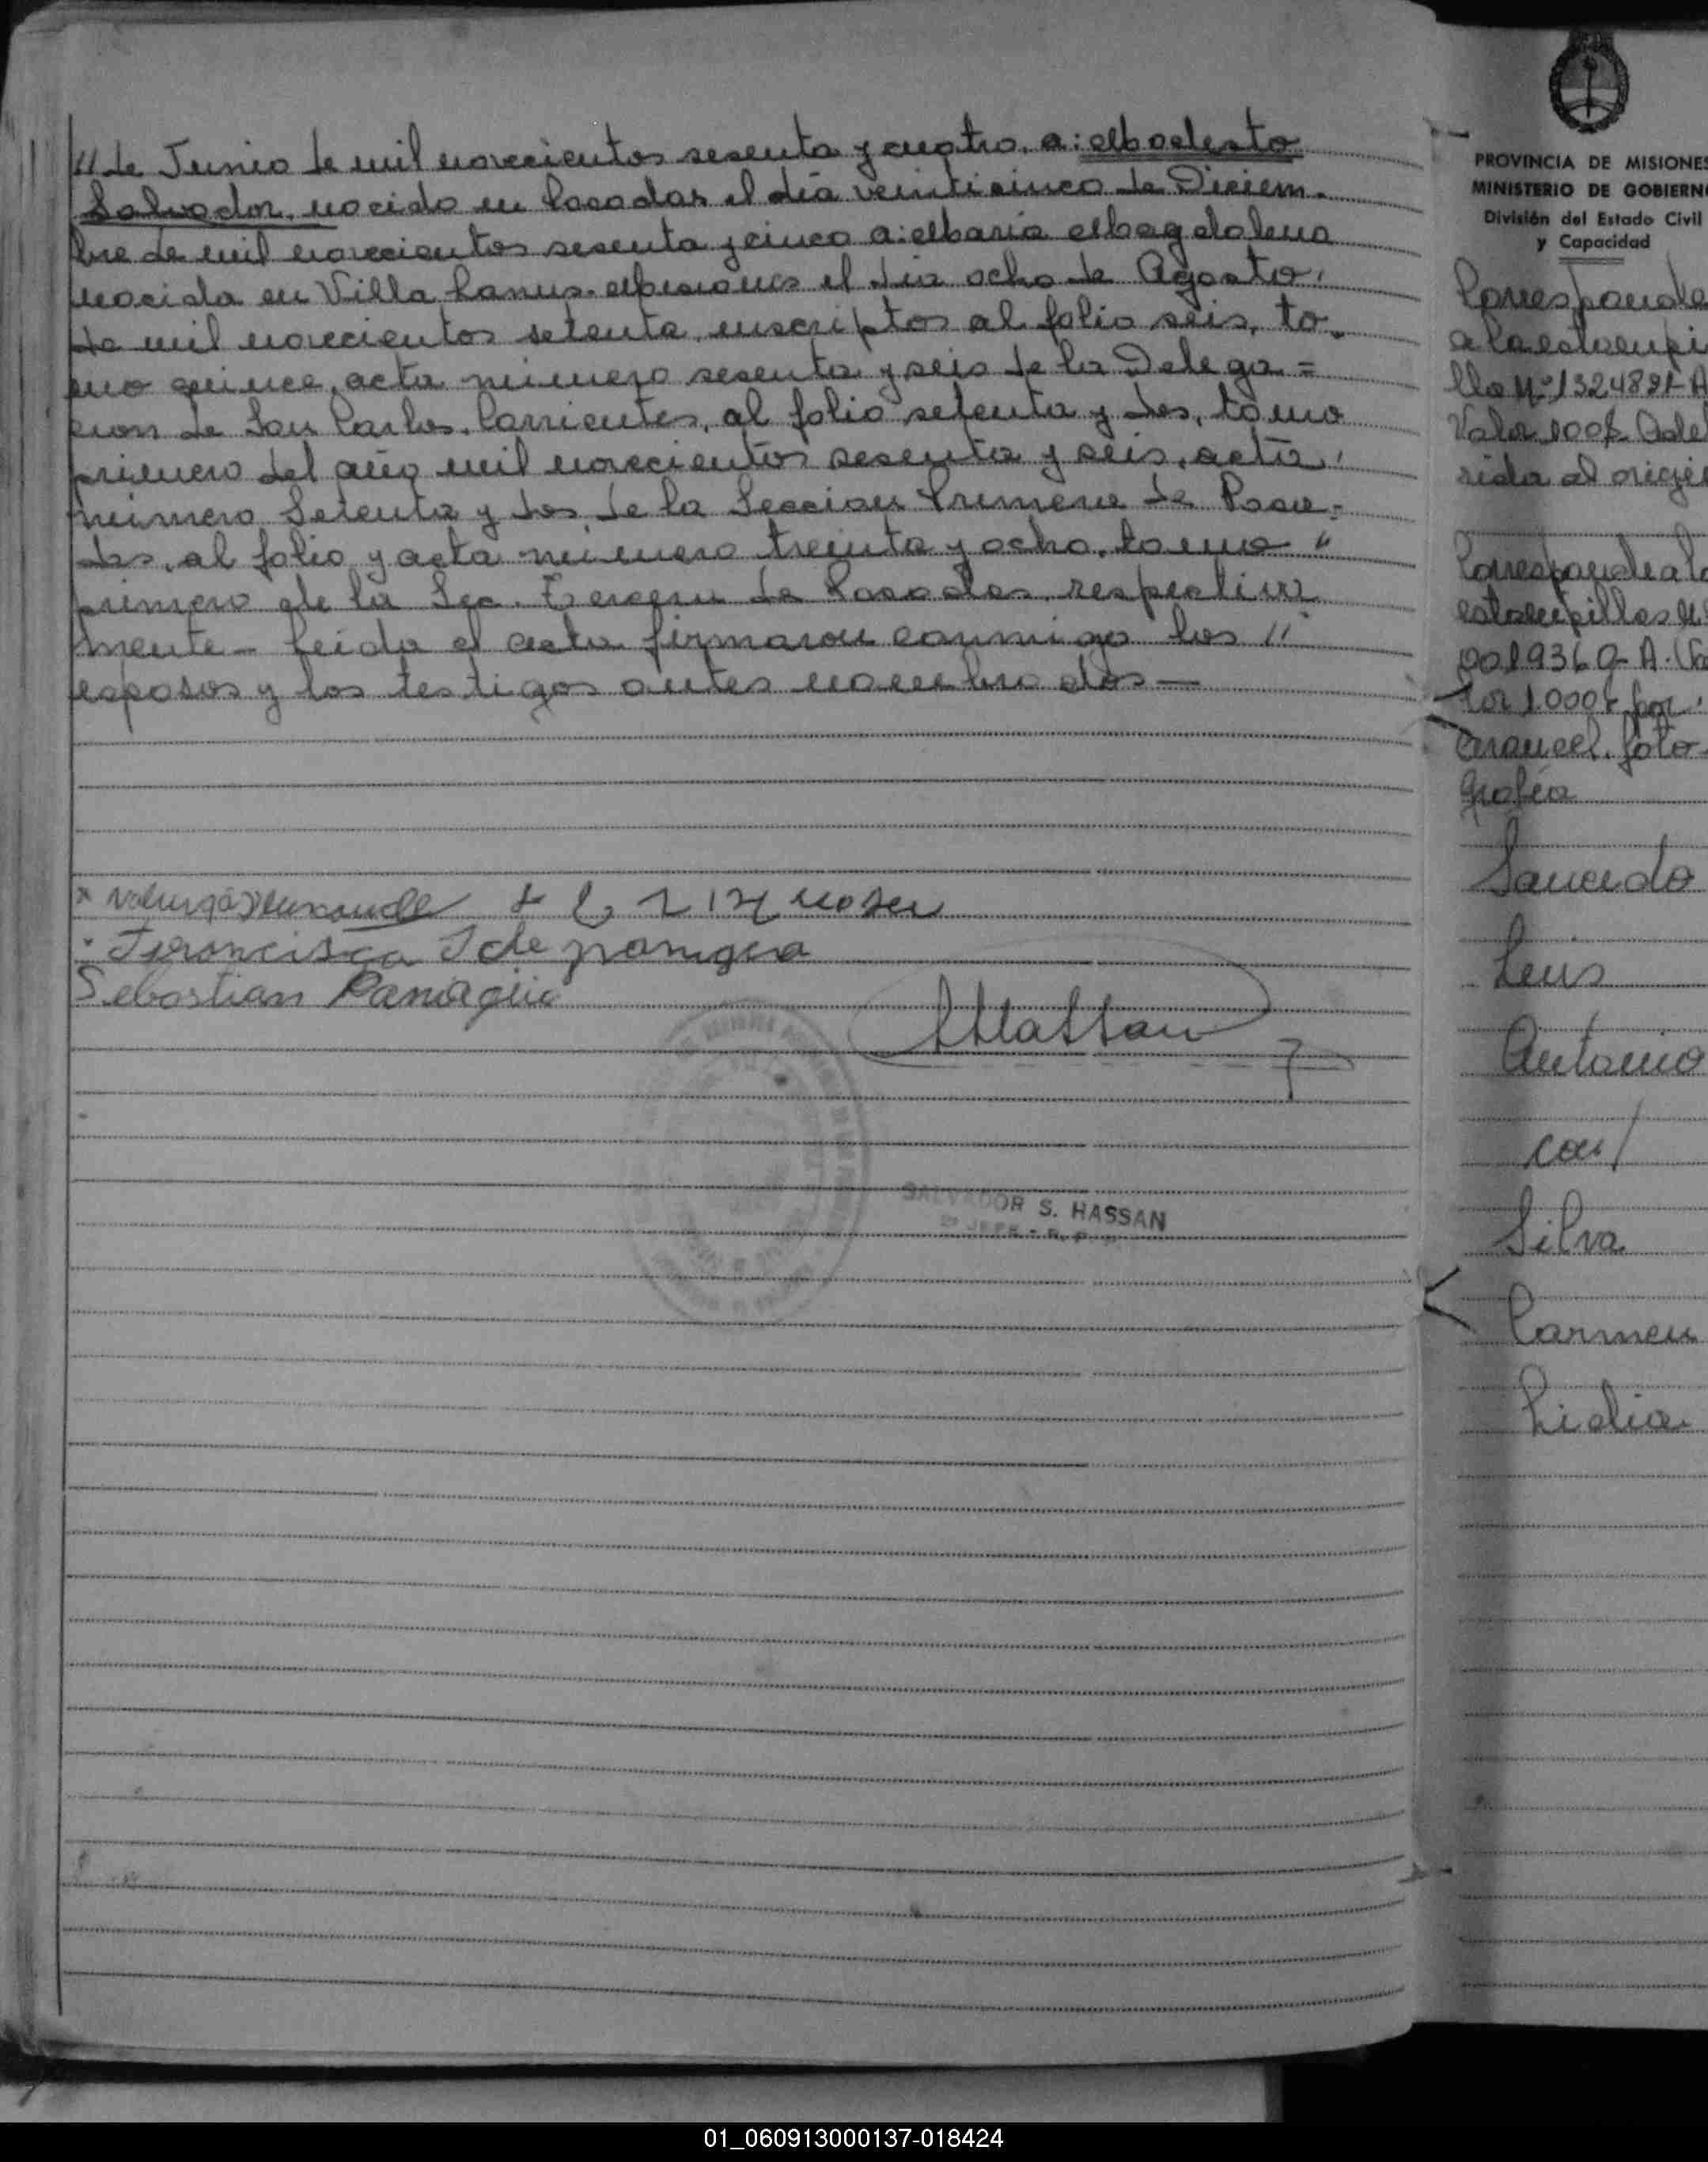 // de Junio de mil novecientos sesenta y cuatro, a: Modesto
Salvador, nacido en Posadas el día veinticinco de Diciem-
bre de mil novecientos sesenta y cinco a: María Magdalena
nacida en Villa Lanus. Misiones el día ocho de Agosto,
de mil novecientos setenta, inscriptos al folio seis, to-
mo quince, acta número sesenta y seis de la Delega=
cion de San Carlos. Corrientes, al folio setenta y dos, tomo
primero del año mil novecientos sesenta y seis, acta,
número Setenta y dos, de la Seccion Primera de Posa-
das, al folio y acta número treinta y ocho, tomo "
primero de la Sec. Tercera de Posadas, respectiva
mente - Leída el acta firmaron conmigo los //
esposos y los testigos antes nombrados—
Francisca S de
Sebastian Paniagua
SALVADOR S. HASSAN
PROVINCIA DE MISIONES
MINISTERIO DE GOBIERNO
División del Estado Civil
y Capacidad
Corresponde
a la estampi
lla Nº 1324891-A
Valor 100$ Adhe
rida al origi
Corresponde a la
estampillas N:
0019360-A.
lor 1.000$ por
arancel. foto-
grafia
Saucedo
Luis
Antonio
con/
Silva
Carmen
Lidia
01_060913000137-018424